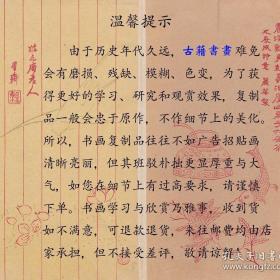 温馨提示
由于历史年代久远，古籍書畫难免
会有磨损、残缺、模糊、色变，为了获
得更好的学习、研究和观赏效果，复制
品一般会忠于原作，不作细节上的美化。
所以，书画复制品往往不如广告招贴画
清晰亮丽，但其班驳朴拙更显厚重与大
气，如您在细节上有过高要求，请谨慎
下单。书画学习与欣赏乃雅事，收到货
如不满意，可退款退货，来往邮费均由店
家承担，但不接受差评，敬请谅解！